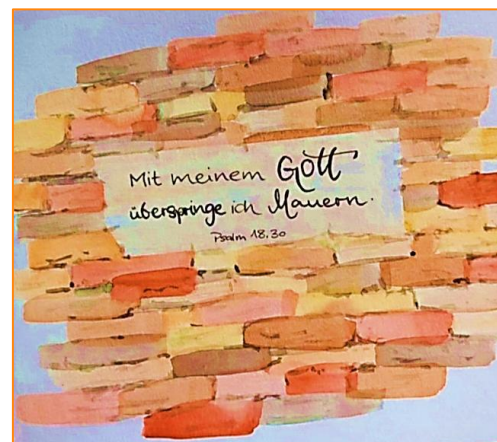 Mit meinem Gott
überspringe ich Mauern.
Psalm 18,30